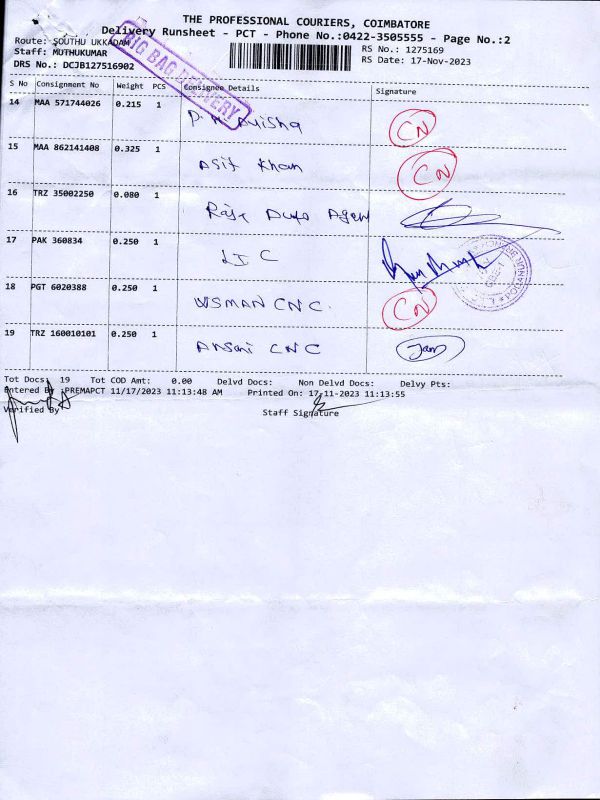 THE PROFESSIONAL COURIERS, COIMBATORE
Delivery Runsheet - PCT - Phone No.:0422-3505555 - Page No.:2
Route: SOUTHU UKKADAM
Staff: MUTHUKUMAR
DRS No.: DCJB127516902
RS No.: 1275169
RS Date: 17-Nov-2023
BIG BAG DELIVERY
S No Consignment No Weight PCS Consignee Details Signature
14 MAA 571744026 0.215 1 CN
15 MAA 862141408 0.325 1 Asif Khan CN
16 TRZ 35002250 0.080 1 Raja Auto Agen
17 PAK 360834 0.250 1 LIC
18 PGT 6020388 0.250 1 USMAN CNC. CN
19 TRZ 160010101 0.250 1 Ansari CNC
Tot Docs: 19 Tot COD Amt: 0.00 Delvd Docs: Non Delvd Docs: Delvy Pts:
Entered By :PREMAPCT 11/17/2023 11:13:48 AM Printed On: 17-11-2023 11:13:55
Verified By Staff Signature